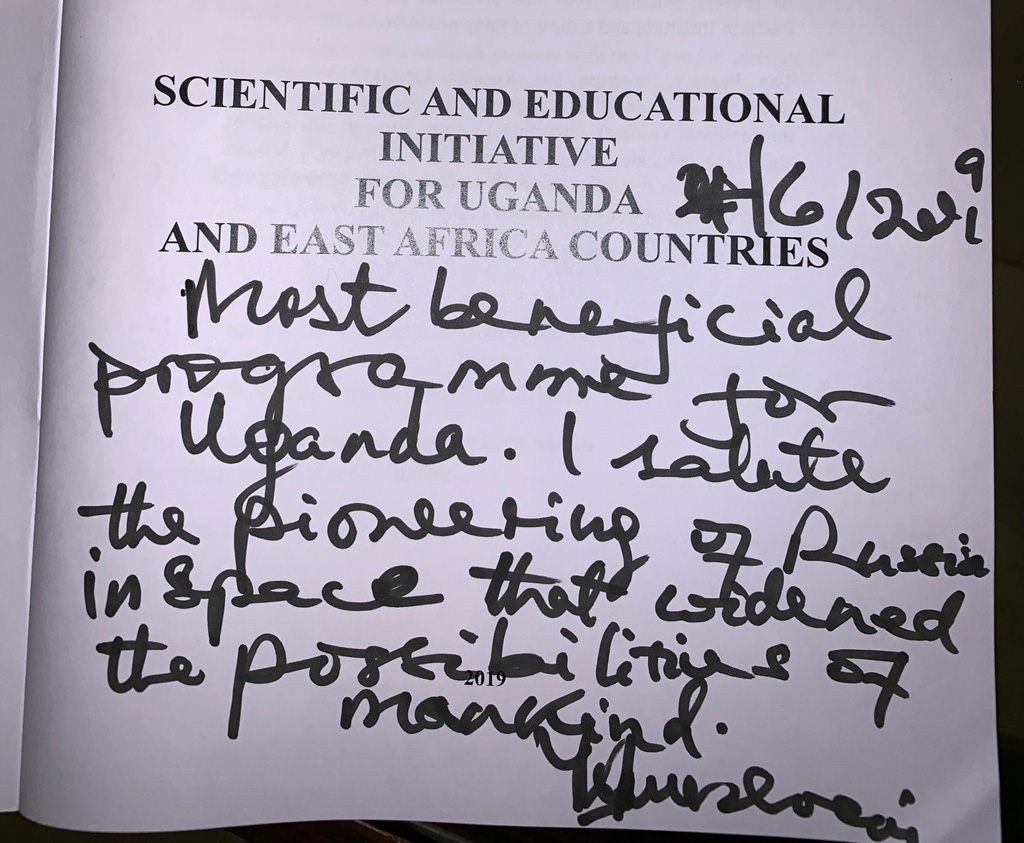 SCIENTIFIC AND EDUCATIONAL
INITIATIVE
FOR UGANDA
/6/2019
AND EAST AFRICA COUNTRIES
Most beneficial
programme for
Uganda. I salute
the pioneering of Russia
in space that widened
the possibilities of
2019
mankind.